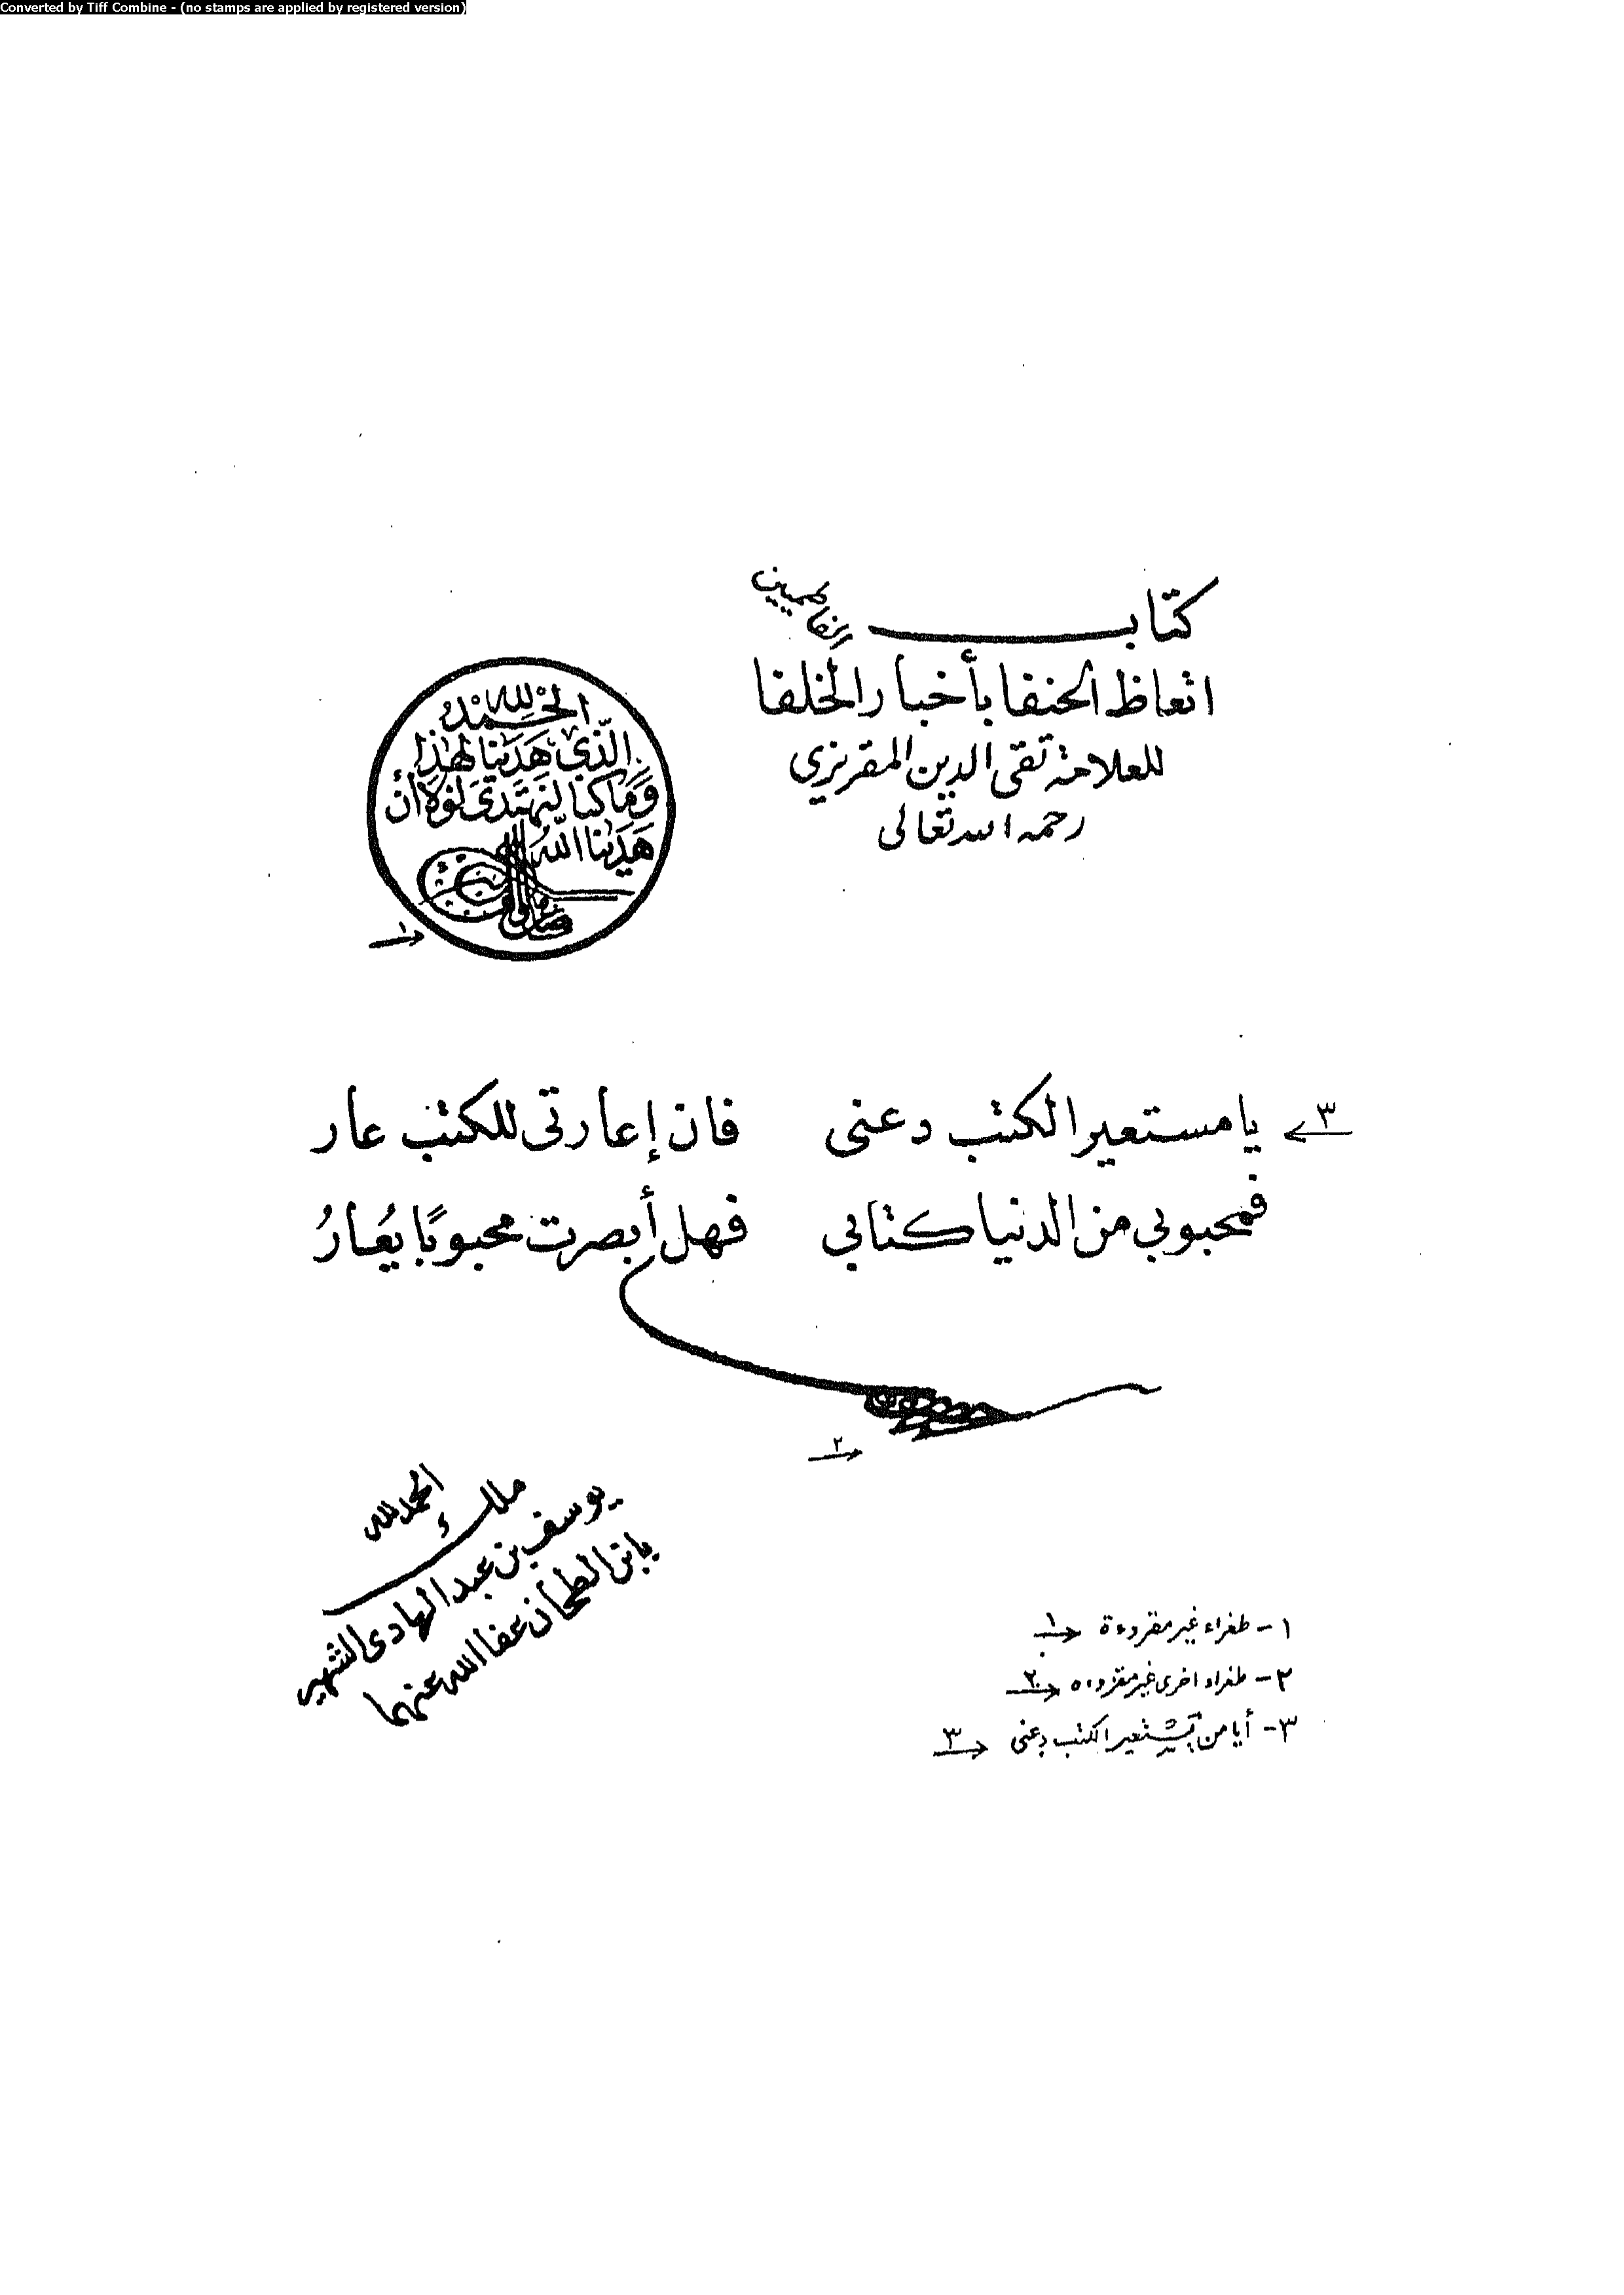 Converted by Tiff Combine - (no stamps are applied by registered version)
كتاب
اتعاظ الحنفا بأخبار الخلفا
الفاطميين
للعلامة تقى الدين المقريزي
رحمه الله تعالى
الحمد لله
الذي هدينا لهذا
وما كنا لنهتدى لولا أن
هدينا الله
١
٣
يا مستعير الكتب دعنى فان إعارتى للكتب عار
فمحبوبي من الدنيا كتابي فهل أبصرت محبوبًا يُعارُ
٢
الحمد لله
ملك
يوسف بن عبد الهادى الشهير
بابن الطحان عفا الله عنهما
١- طغراء غير مقروءة ١
٢- طغراء اخرى غير مقروءه ٢
٣- أيا من يستعير الكتب دعنى ٣